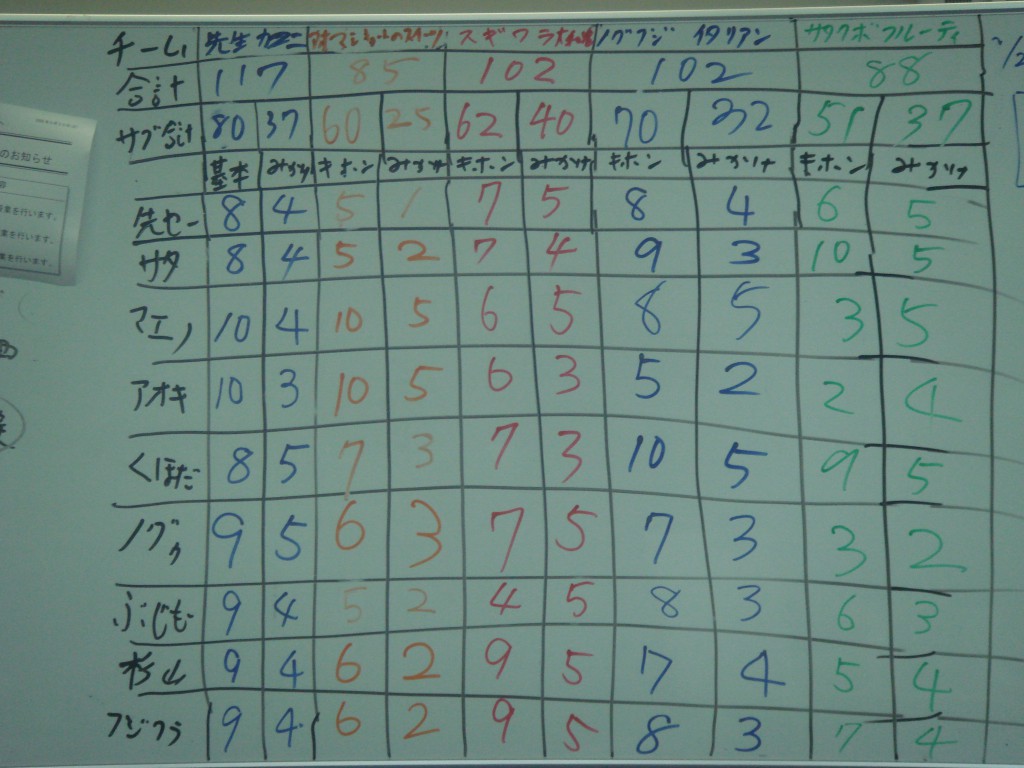 チーム 先生 スギワラ ノグフジ イタリアン サククボフルーティ
合計 117 85 102 102 88
サブ合計 80 37 60 25 62 40 70 32 51 37
基本 みかけ キホン みかけ キホン みかけ キホン みかけ キホン みかけ
先セー 8 4 5 1 7 5 8 4 6 5
サタ 8 4 5 2 7 4 9 3 10 5
マエノ 10 4 10 5 6 5 8 5 3 5
アオキ 10 3 10 5 6 3 5 2 2 4
くぼた 8 5 7 3 7 3 10 5 9 5
ノグク 9 5 6 3 7 5 7 3 3 2
ふじも 9 4 5 2 4 5 8 3 6 3
杉山 9 4 6 2 9 5 7 4 5 4
フジワラ 9 4 6 2 9 5 8 3 7 4
のお知らせ
業を行います。
業を行います。
を行います。